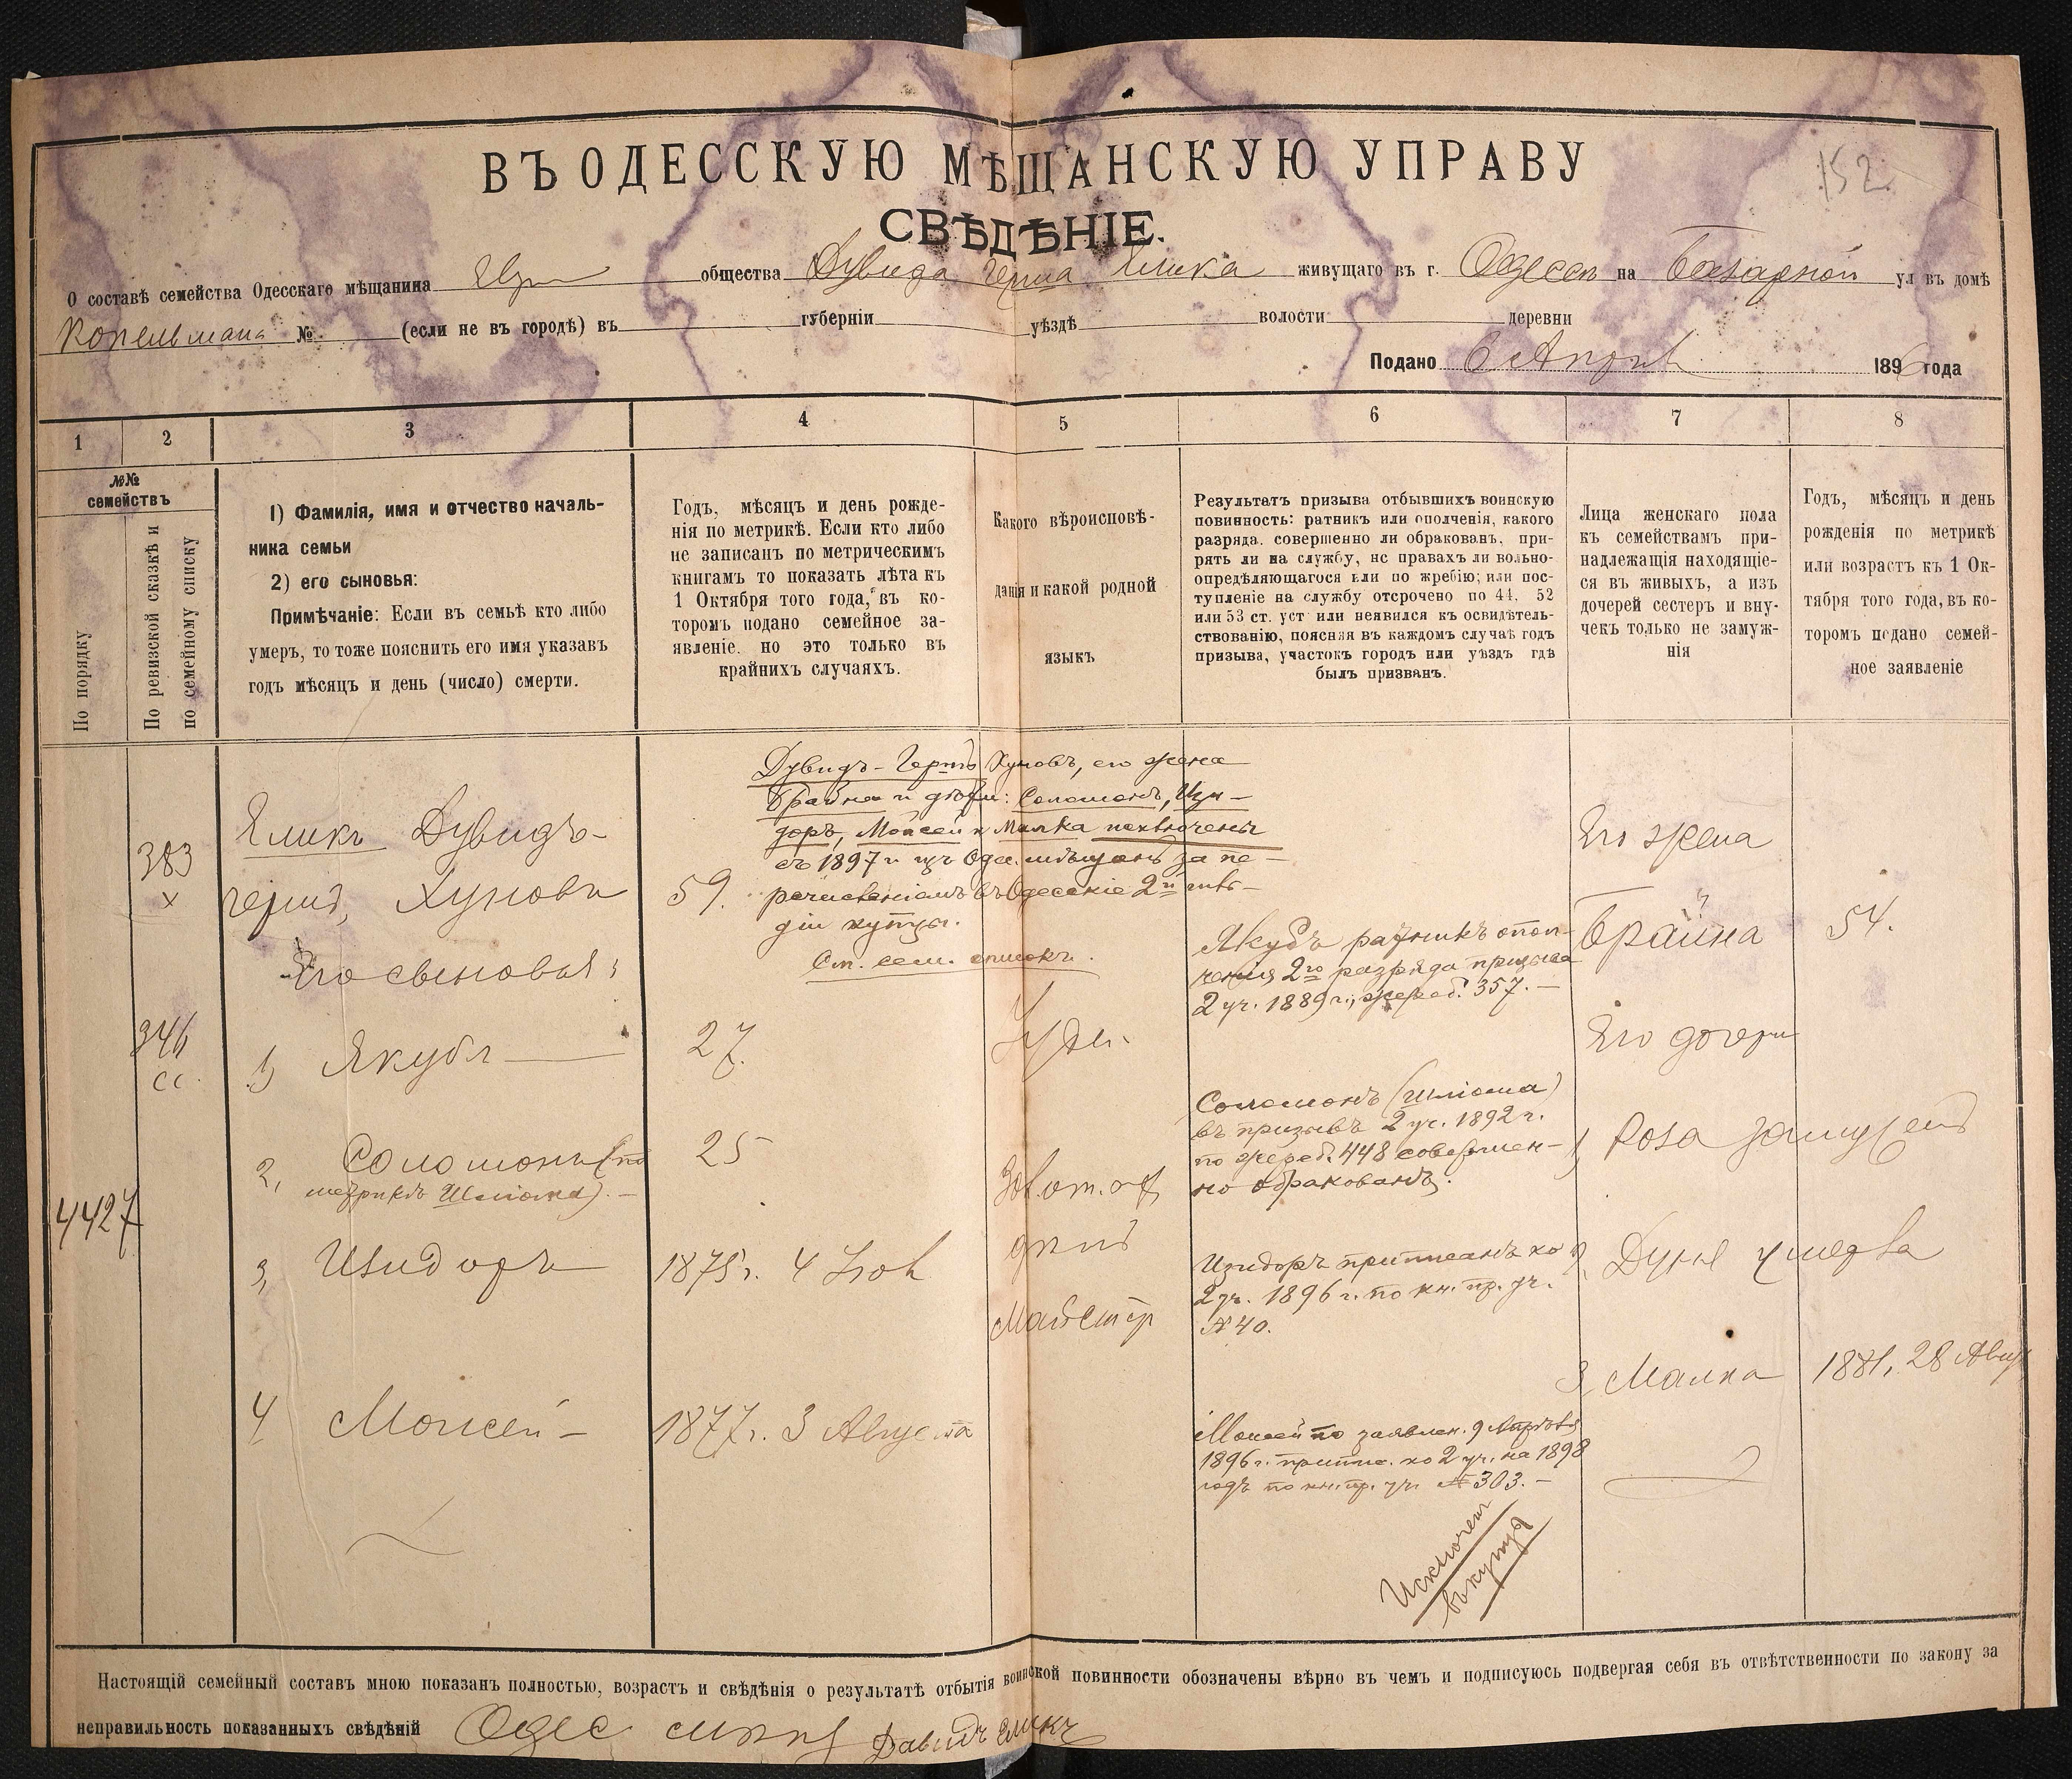 152
ВЪ ОДЕССКУЮ МѢЩАНСКУЮ УПРАВУ
СВѢДѢНІЕ.
О составѣ семейства Одесскаго мѣщанина Евр общества Дувида Герша Елика живущаго въ г. Одессѣ на Базарной ул въ домѣ
Копельмана № (если не въ городѣ) въ губерніи уѣздѣ волости деревни
Подано 6 Апрѣл 1896 года
1 2 3 4 5 6 7 8
№№ семействъ
По порядку
По ревизской сказкѣ и
по семейному списку
1) Фамилія, имя и отчество началь-
ника семьи
2) его сыновья:
Примѣчаніе: Если въ семьѣ кто либо
умеръ, то тоже пояснить его имя указавъ
годъ мѣсяцъ и день (число) смерти.
Годъ, мѣсяцъ и день рожде-
нія по метрикѣ. Если кто либо
не записанъ по метрическимъ
книгамъ то показать лѣта къ
1 Октября того года, въ ко-
торомъ подано семейное за-
явленіе. но это только въ
крайнихъ случаяхъ.
Какого вѣроисповѣ-
данія и какой родной
языкъ
Результатъ призыва отбывшихъ воинскую
повинность: ратникъ или ополченія, какого
разряда. совершенно ли обракованъ, при-
рять ли на службу, нс правахъ ли вольно-
опредѣляющагося или по жребію; или пос-
тупленіе на службу отсрочено по 44, 52
или 53 ст. уст или неявился къ освидѣтель-
ствованію, поясняя въ каждомъ случаѣ годъ
призыва, участокъ городъ или уѣздъ гдѣ
былъ призванъ.
Лица женскаго пола
къ семействамъ при-
надлежащія находящіе-
ся въ живыхъ, а изъ
дочерей сестеръ и вну-
чекъ только не замуж-
нія
Годъ, мѣсяцъ и день
рожденія по метрикѣ
или возрастъ къ 1 Ок-
тября того года, въ ко-
торомъ подано семей-
ное заявленіе
4427
383
х
346
сс.
Еликъ Дувидъ-
Гершъ, Хуновъ
Его сыновья:
1) Якубъ
2, Соломонъ (по
метрикѣ Шліома). -
3, Изидоръ
4 Моисей -
59.
27.
25
1875 г. 4
1877 г. 3 Августа
Дувидъ-Гершъ Хуновъ, его жена
Брайна и дѣти: Соломонъ, Изи-
доръ, Моисей и Малка исключены
съ 1897 г. изъ Одес. мѣщанъ за пе-
речисленіемъ въ Одесскіе 2й гиль-
діи купцы.
См. сем. списокъ.
Іуде.
Якубъ ратникъ опол-
ченія 2го разряда призыва
2 уч. 1889 г., жереб. 357. -
Соломонъ (Шліома)
въ призывъ 2 уч. 1892 г.
по жереб. 448 совершен-
но обракованъ.
Изидоръ приписанъ ко
2 уч. 1896 г. по кн. пр. уч.
№ 40.
Моисей по заявлен. 9 Апрѣля
1896 г. припис. ко 2 уч. на 1898
годъ по кн. пр. уч. № 303. -
Исключен
въ купцы
Его жена
Брайна 54.
Его дочери
1, Роза замужемъ
2, Дуня умерла
3, Малка 1881, 28 Авгус
Настоящій семейный составъ мною показанъ полностью, возрастъ и свѣдѣнія о результатѣ отбытія воинской повинности обозначены вѣрно въ чемъ и подписуюсь подвергая себя въ отвѣтственности по закону за
неправильность показанныхъ свѣдѣній Одес Давидъ Еликъ